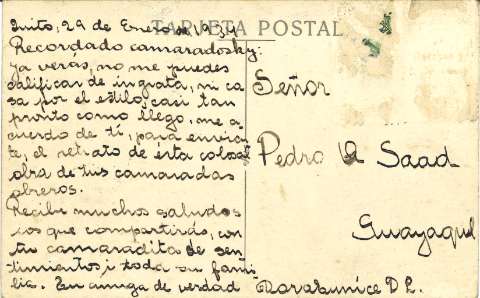 TARJETA POSTAL
Quito, 29 de Enero de 1934
Recordado camaradosky:
ya verás, no me puedes
calificar de ingrata, ni co
sa por el estilo, casi tan
pronto como llego, me a
cuerdo de tí, para enviar
te, el retrato de ésta colosal
obra de tus camaradas
obreros.
Recibe muchos saludos
los que compartirás, con
tu camaradita de sen
timientos i toda su fami
lia. Tu amiga de verdad
Señor
Pedro A Saad
Guayaquil